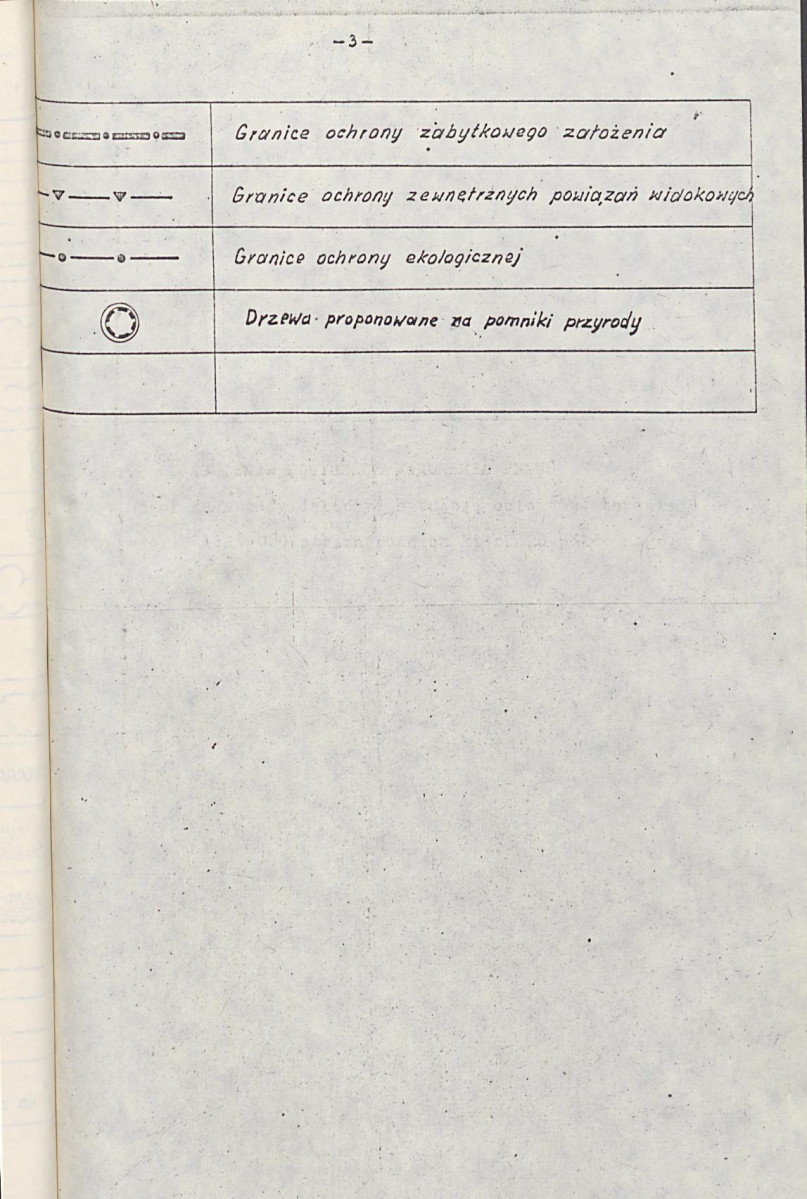 -3-
Granice ochrony zabytkowego założenia
Granice ochrony zewnętrznych powiązań widokowych
Granice ochrony ekologicznej
Drzewa proponowane na pomniki przyrody